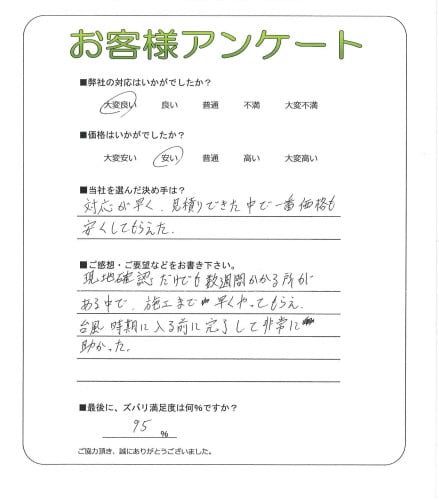 お客様アンケート
■弊社の対応はいかがでしたか?
大変良い 良い 普通 不満 大変不満
■価格はいかがでしたか?
大変安い 安い 普通 高い 大変高い
■当社を選んだ決め手は?
対応が早く、見積りできた中で一番価格も
安くしてもらえた.
■ご感想・ご要望などをお書き下さい。
現地確認だけでも数週間かかる所が
ある中で、施工まで早くやってもらえ.
台風時期に入る前に完了して非常に
助かった.
■最後に、ズバリ満足度は何%ですか?
95 %
ご協力頂き、誠にありがとうございました。